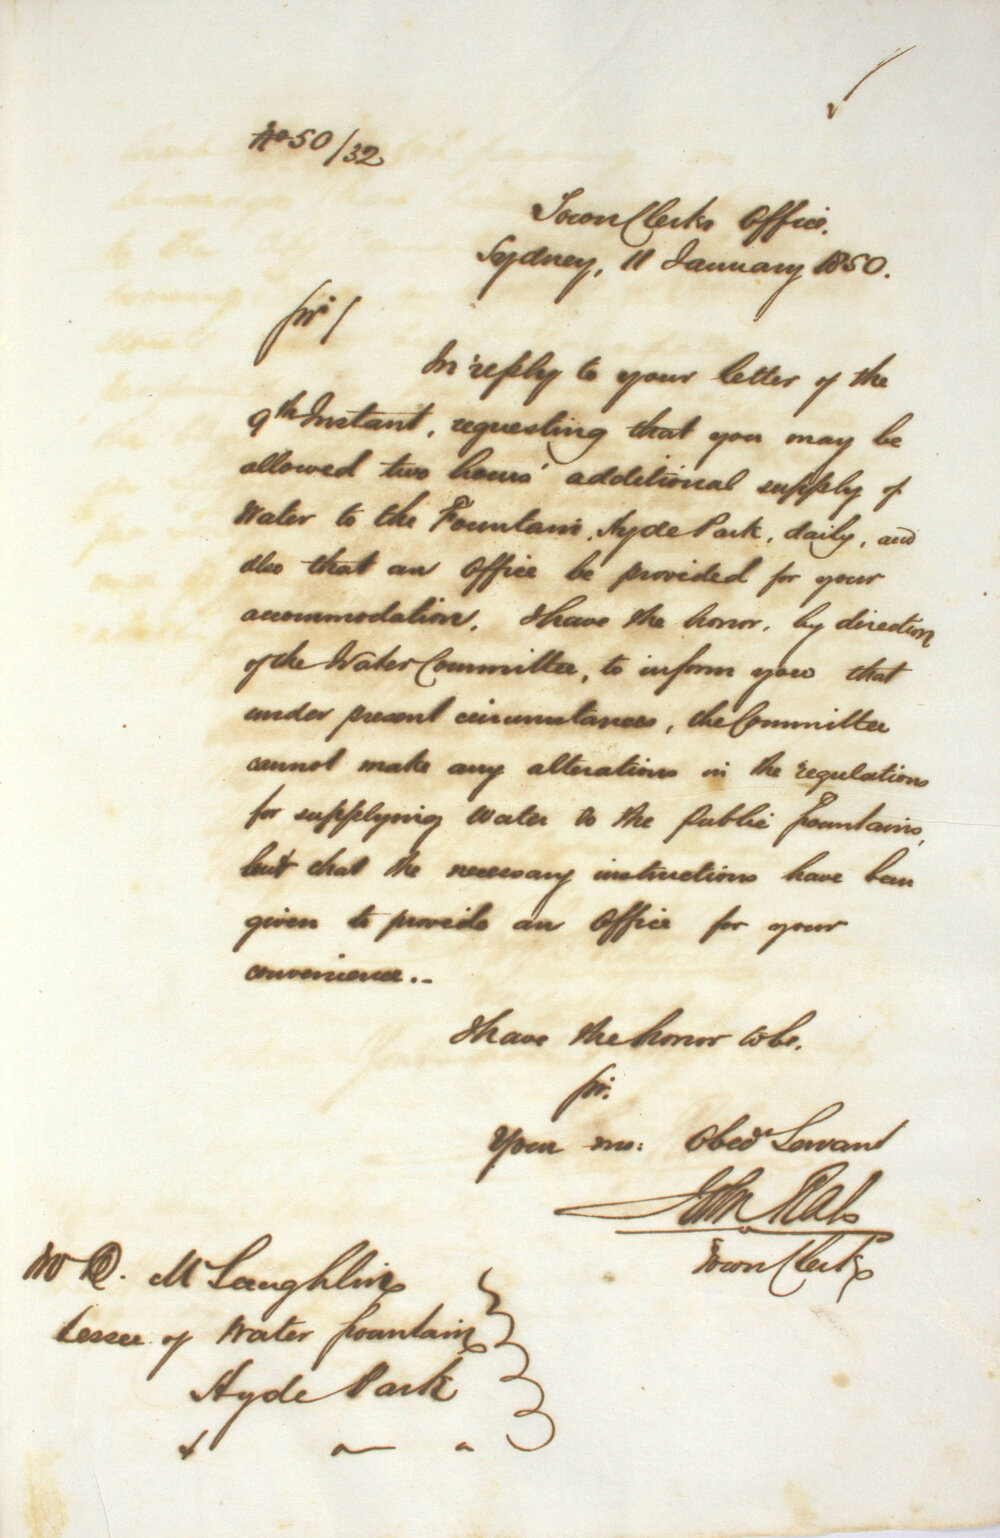 No 50/32
Town Clerks Office.
Sydney, 11 January 1850.
Sir/
In reply to your letter of the
9th Instant, requesting that you may be
allowed two hours' additional supply of
Water to the Fountain, Hyde Park, daily, and
also that an Office be provided for your
accommodation, I have the honor, by direction
of the Water Committee, to inform you that
under present circumstances, the Committee
cannot make any alterations in the regulations
for supplying Water to the Public Fountains,
but that the necessary instructions have been
given to provide an Office for your
convenience..
I have the honor to be,
Sir.
Your mo: Obedt Servant
John
Town Clerk
Mr McLaughlin
Lessee of Water fountain
Hyde Park